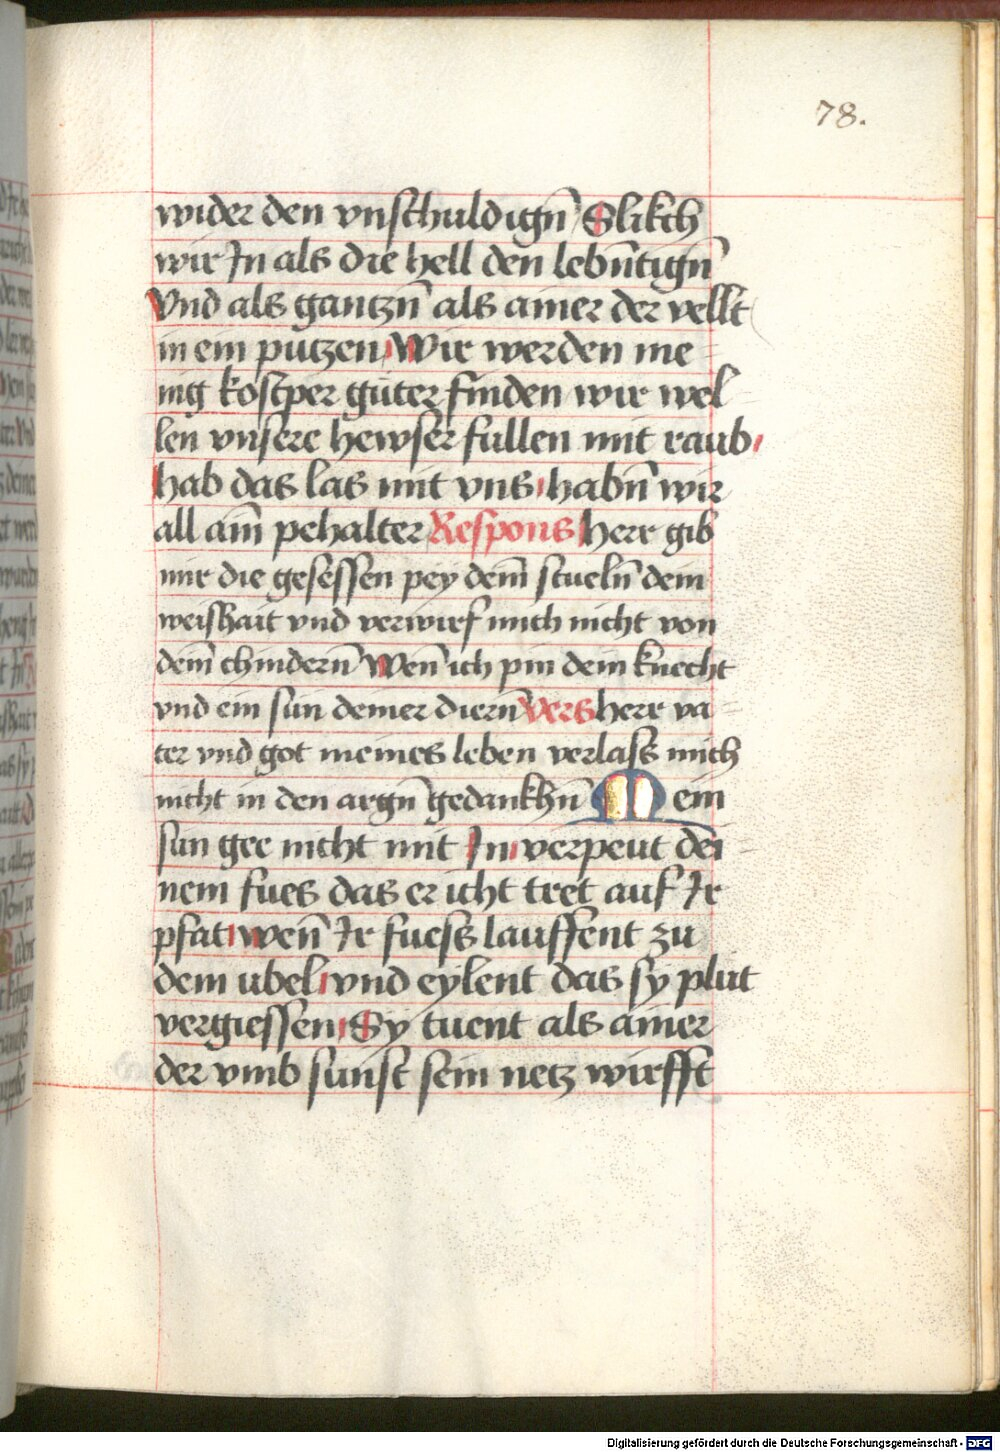 78.
wider den vnschuldign̄ Slikch
wir In als die hell den lebn̄tign̄
Vnd als gantzn̄ als ainer der vellt
in ein putzen Wir werden me=
nig kostper güter finden wir wel=
len vnsere hewser fullen mit raub
hab das las mit vns habn̄ wir
all aim̄ pehalter Respons Herr gib
mir die gesessen pey deim̄ stueln̄ dein
weishait vnd verwirf mich nicht von
deim̄ chindern̄ Wen̄ ich pin dein knecht
vnd ein sün deiner diern̄ Vers herr va=
ter vnd got meines leben verlass mich
nicht in den argn̄ gedankhn̄ Mein
sün gee nicht mit In verpeut dei=
nem fues das er icht tret auf Ir
pfat wen̄ Ir fuess lauffent zu
dem übel vnd eylent das sy plüt
vergiessen Sy tuent als ainer
der vmb sünst sein netz wirfft
Digitalisierung gefördert durch die Deutsche Forschungsgemeinschaft - DFG